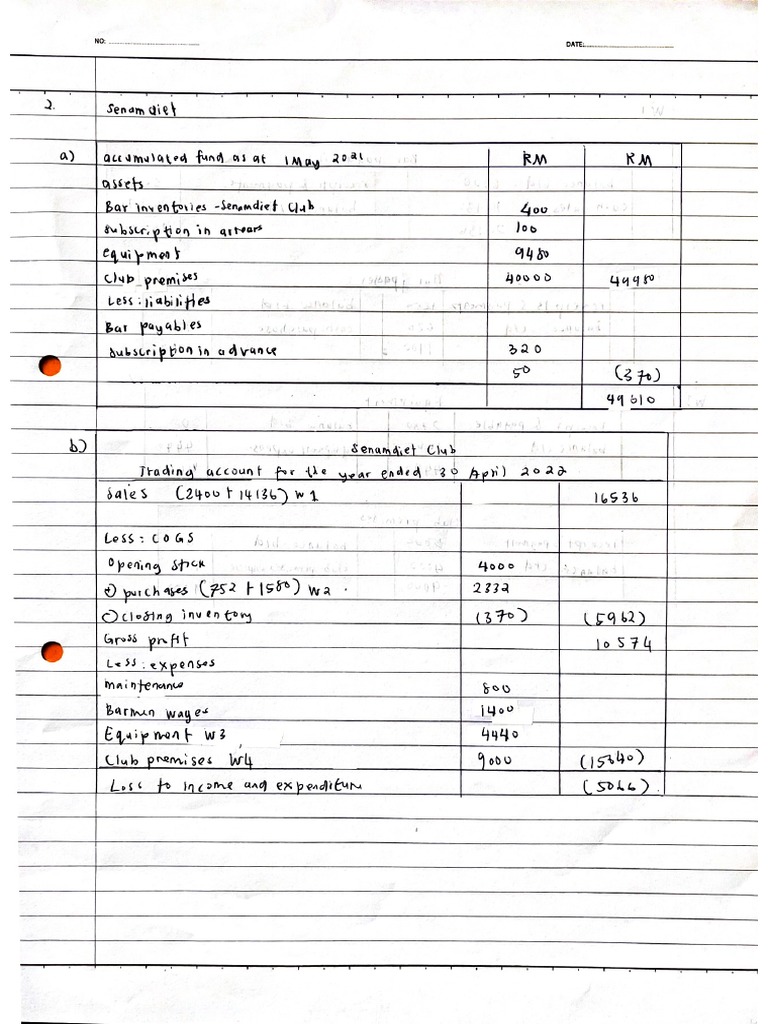 NO: DATE:
2. Senamdiet
a) accumulated fund as at 1 May 2021 RM RM
assets
Bar inventories - Senamdiet Club 400
subscription in arrears 100
equipment 9480
Club premises 40000 49980
Less: liabilities
Bar payables
subscription in advance 320
50 (370)
49610
b) Senamdiet Club
Trading account for the year ended 30 April 2022
Sales (2400 + 14136) W1 16536
Less: COGS
Opening stick 4000
(+) purchases (752 + 1580) W2 2332
(-) closing inventory (370) (5962)
Gross profit 10574
Less: expenses
maintenance 800
Barmen wages 1400
Equipment W3 4440
Club premises W4 9000 (15640)
Loss to income and expenditure (5066)